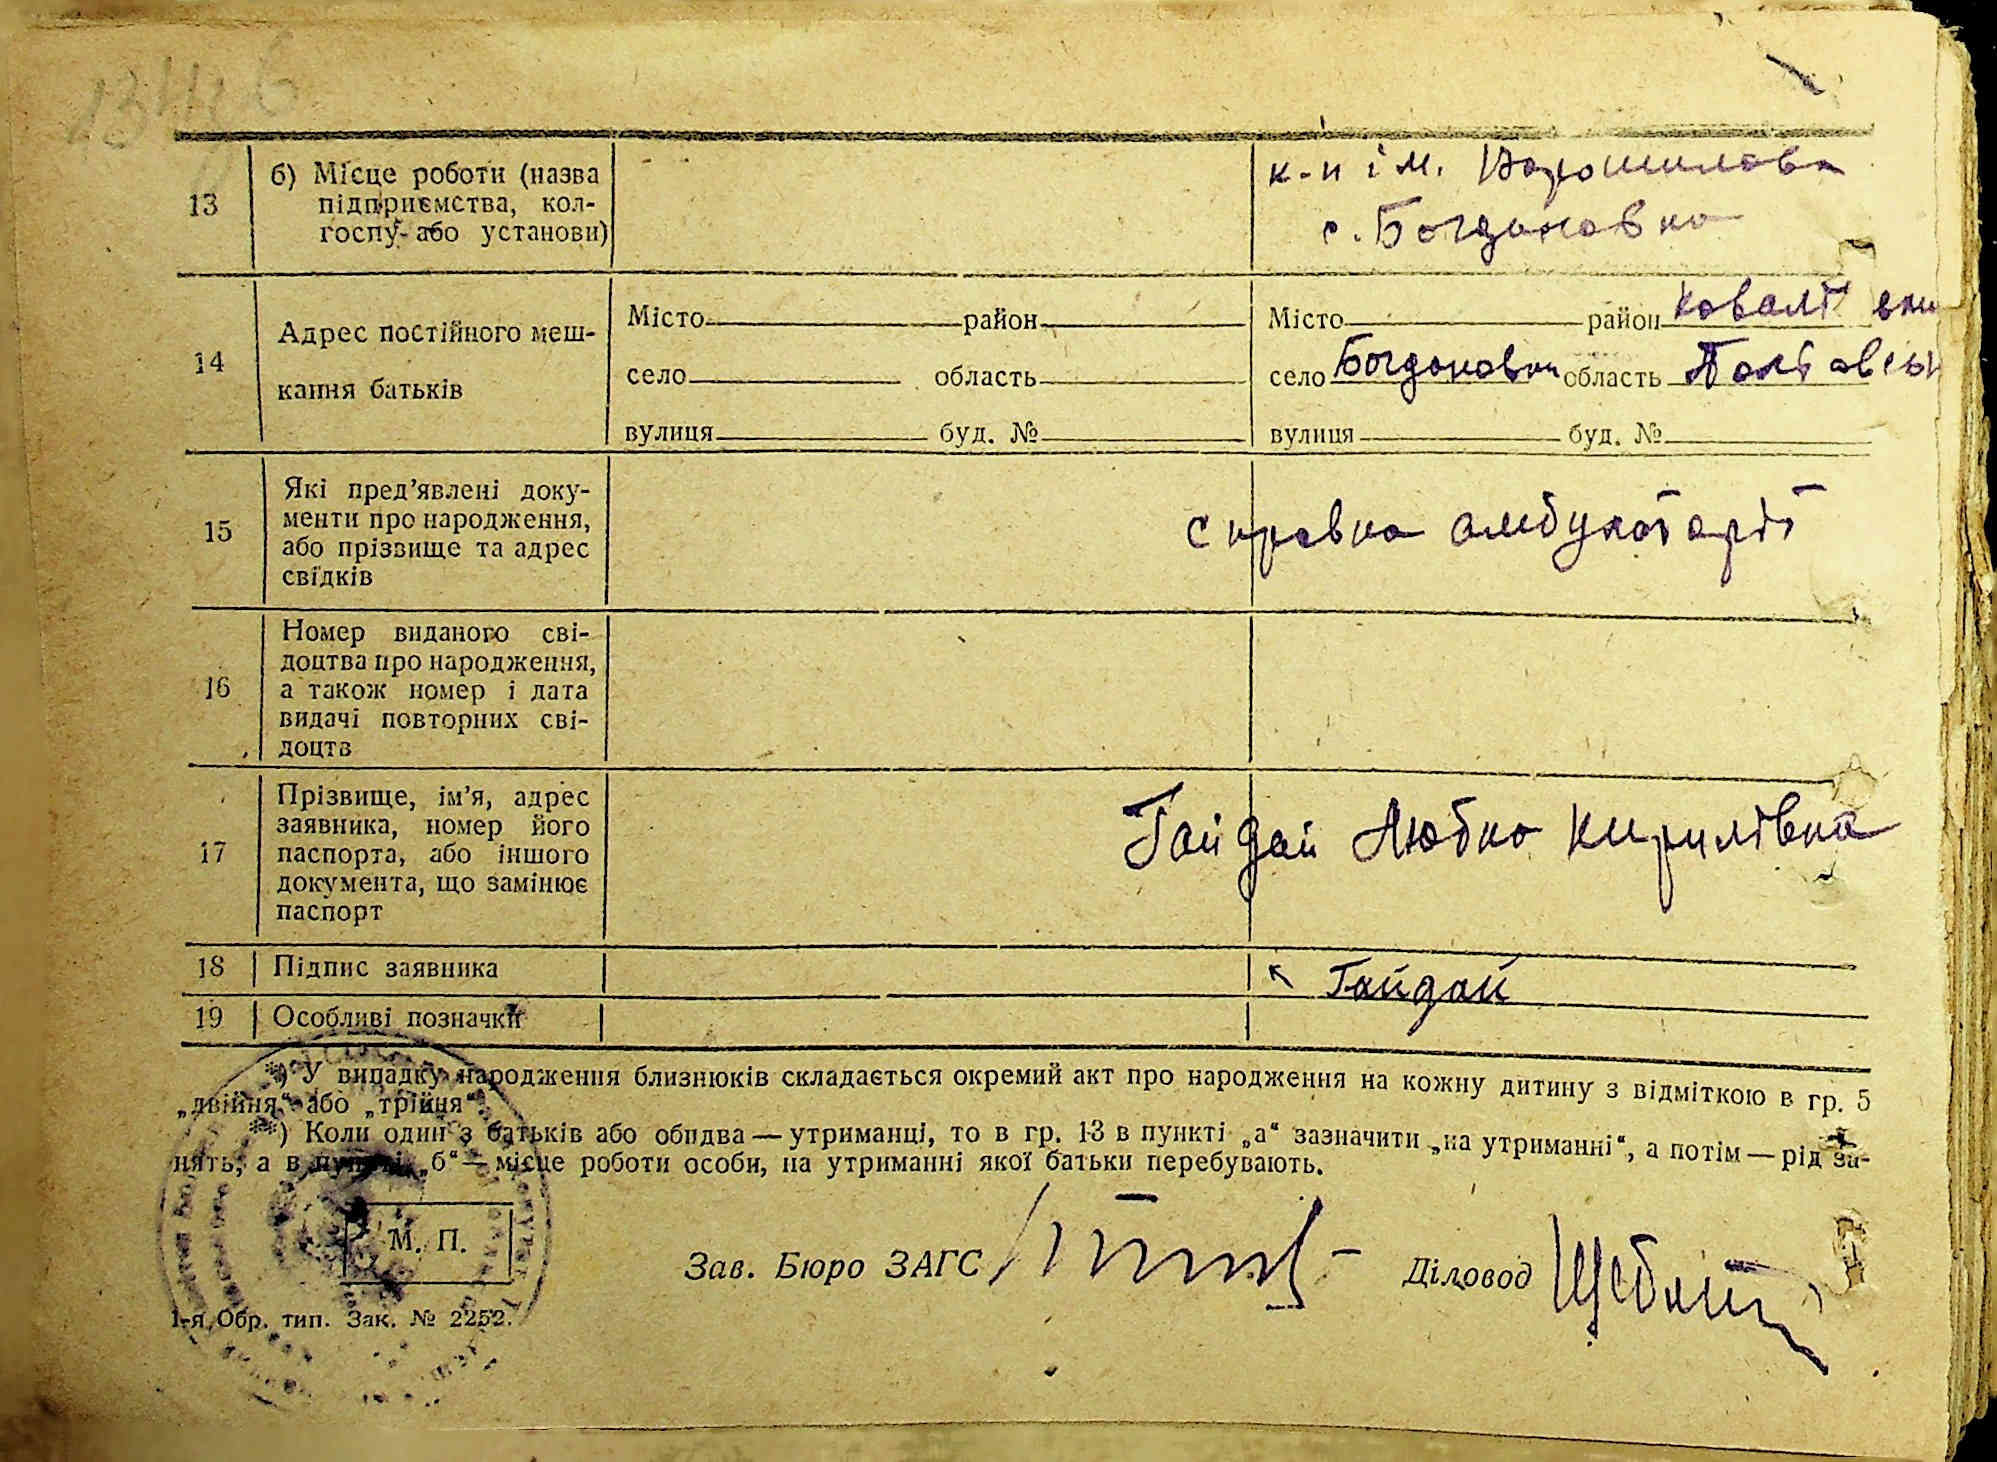 13
б) Місце роботи (назва
підприємства, кол-
госпу або установи)
к-п ім. Ворошилова
с. Богдановка
14
Адрес постійного меш-
кання батьків
Місто район
село область
вулиця буд. №
Місто район Ковалівськи
село Богдановка область Полтавськ
вулиця буд. №
15
Які пред’явлені доку-
менти про народження,
або прізвище та адрес
свідків
справка амбулаторії
16
Номер виданого сві-
доцтва про народження,
а також номер і дата
видачі повторних сві-
доцтв
17
Прізвище, ім’я, адрес
заявника, номер його
паспорта, або іншого
документа, що замінює
паспорт
Гайдай Любка Кирилівна
18 Підпис заявника
Гайдай
19 Особливі позначки
*) У випадку народження близнюків складається окремий акт про народження на кожну дитину з відміткою в гр. 5
„двійня“ або „трійня“.
**) Коли один з батьків або обидва — утриманці, то в гр. 13 в пункті „а“ зазначити „на утриманні“, а потім — рід за-
нять, а в пункті „б“ — місце роботи особи, на утриманні якої батьки перебувають.
М. П.
Зав. Бюро ЗАГС
Діловод
1-я Обр. тип. Зак. № 2252.